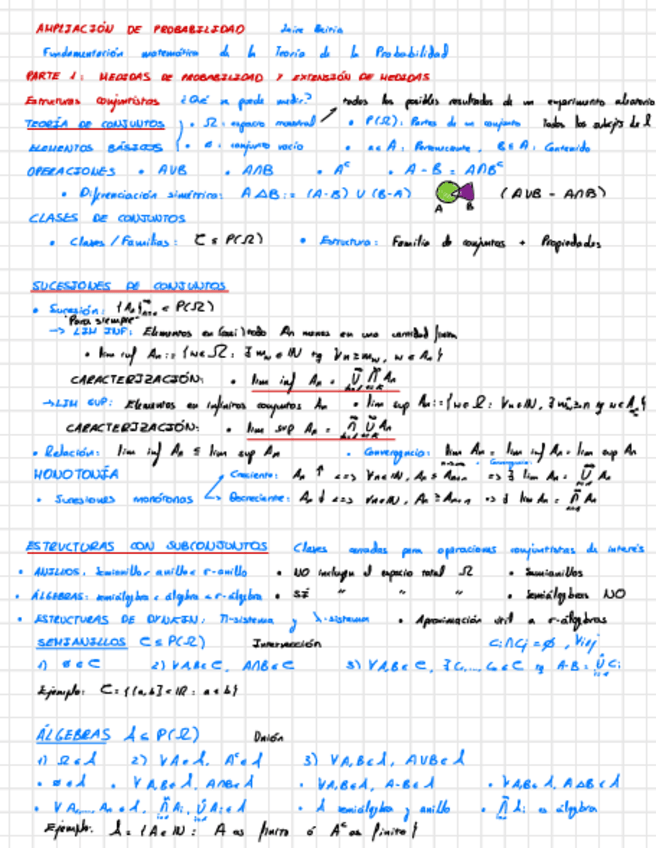 AMPLIACIÓN DE PROBABILIDAD Jaire
Fundamentación matemática de la Teoría de la Probabilidad
PARTE 1: MEDIDAS DE PROBABILIDAD Y EXTENSIÓN DE MEDIDAS
Estructuras conjuntistas ¿Qué se puede medir? todos los posibles resultados de un experimento aleatorio
TEORÍA DE CONJUNTOS • Ω: espacio muestral • P(Ω): Partes de un conjunto Todos los subcjs de Ω
ELEMENTOS BÁSICOS • ∅: conjunto vacío • a∈A: Perteneciente, B⊆A: Contenido
OPERACIONES • A∪B • A∩B • Aᶜ • A-B = A∩Bᶜ
• Diferenciación simétrica: A△B := (A-B) ∪ (B-A) A B (A∪B - A∩B)
CLASES DE CONJUNTOS
• Clases/Familias: C ⊆ P(Ω) • Estructura: Familia de conjuntos + Propiedades
SUCESIONES DE CONJUNTOS
• Sucesión: {Aₙ}ₙ₌₁^∞ ⊆ P(Ω)
"Para siempre"
→ LIM INF: Elementos en (casi) todo Aₙ menos en una cantidad finita
• lim inf Aₙ := {w∈Ω: ∃ m_w∈ℕ tq ∀n≥m_w, w∈Aₙ}
CARACTERIZACIÓN: • lim inf Aₙ = ∪ ∩ Aₙ
→ LIM SUP: Elementos en infinitos conjuntos Aₙ • lim sup Aₙ := {w∈Ω: ∀n∈ℕ, ∃ m≥n tq w∈Aₘ}
CARACTERIZACIÓN: • lim sup Aₙ = ∩ ∪ Aₙ
• Relación: lim inf Aₙ ⊆ lim sup Aₙ • Convergencia: lim Aₙ = lim inf Aₙ = lim sup Aₙ
MONOTONÍA Creciente: Aₙ ↑ <=> ∀n∈ℕ, Aₙ ⊆ Aₙ₊₁ => ∃ lim Aₙ = ∪ Aₙ
• Sucesiones monótonas Decreciente: Aₙ ↓ <=> ∀n∈ℕ, Aₙ ⊇ Aₙ₊₁ => ∃ lim Aₙ = ∩ Aₙ
ESTRUCTURAS CON SUBCONJUNTOS Clases cerradas para operaciones conjuntistas de interés
• ANILLOS: semianillo, anillo e σ-anillo • NO incluyen el espacio total Ω • Semianillos
• ÁLGEBRAS: semiálgebra, álgebra e σ-álgebra • SÍ " " " • Semiálgebras NO
• ESTRUCTURAS DE DYNKIN: Π-sistema y λ-sistema • Aproximación útil a σ-álgebras
SEMIANILLOS C ⊆ P(Ω) Intersección Cᵢ∩Cⱼ=∅, ∀i≠j
1) ∅∈C 2) ∀A,B∈C, A∩B∈C 3) ∀A,B∈C, ∃C₁,...,Cₙ∈C tq A-B = ∪Cᵢ
Ejemplo: C = {(a,b]∈ℝ: a≤b}
ÁLGEBRAS A ⊆ P(Ω) Unión
1) Ω∈A 2) ∀A∈A, Aᶜ∈A 3) ∀A,B∈A, A∪B∈A
• ∅∈A • ∀A,B∈A, A∩B∈A • ∀A,B∈A, A-B∈A • ∀A,B∈A, A△B∈A
• ∀A₁,...,Aₙ∈A, ∩Aᵢ, ∪Aᵢ∈A • A semiálgebra y anillo • ∩Aᵢ es álgebra
Ejemplo: A = {A∈ℕ: A es finito ó Aᶜ es finito}